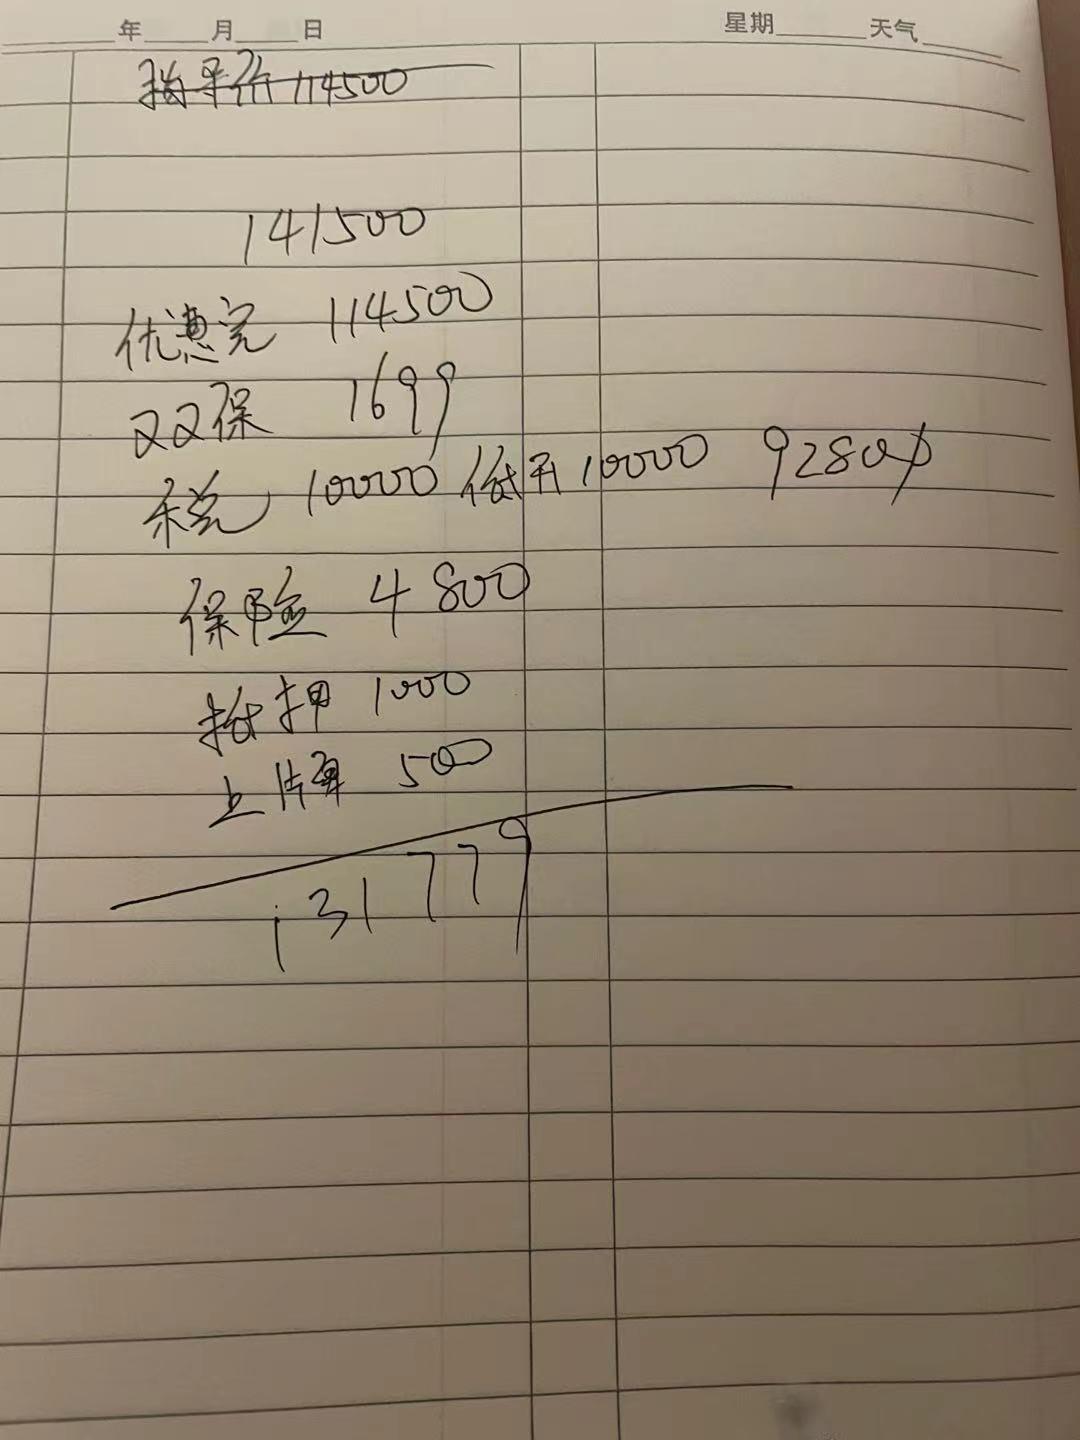 年 月 日 星期 天气
指导价 114500
141500
优惠完 114500
双保 1699
税 10000 低开10000 9280
保险 4800
抵押 1000
上牌 500
131779